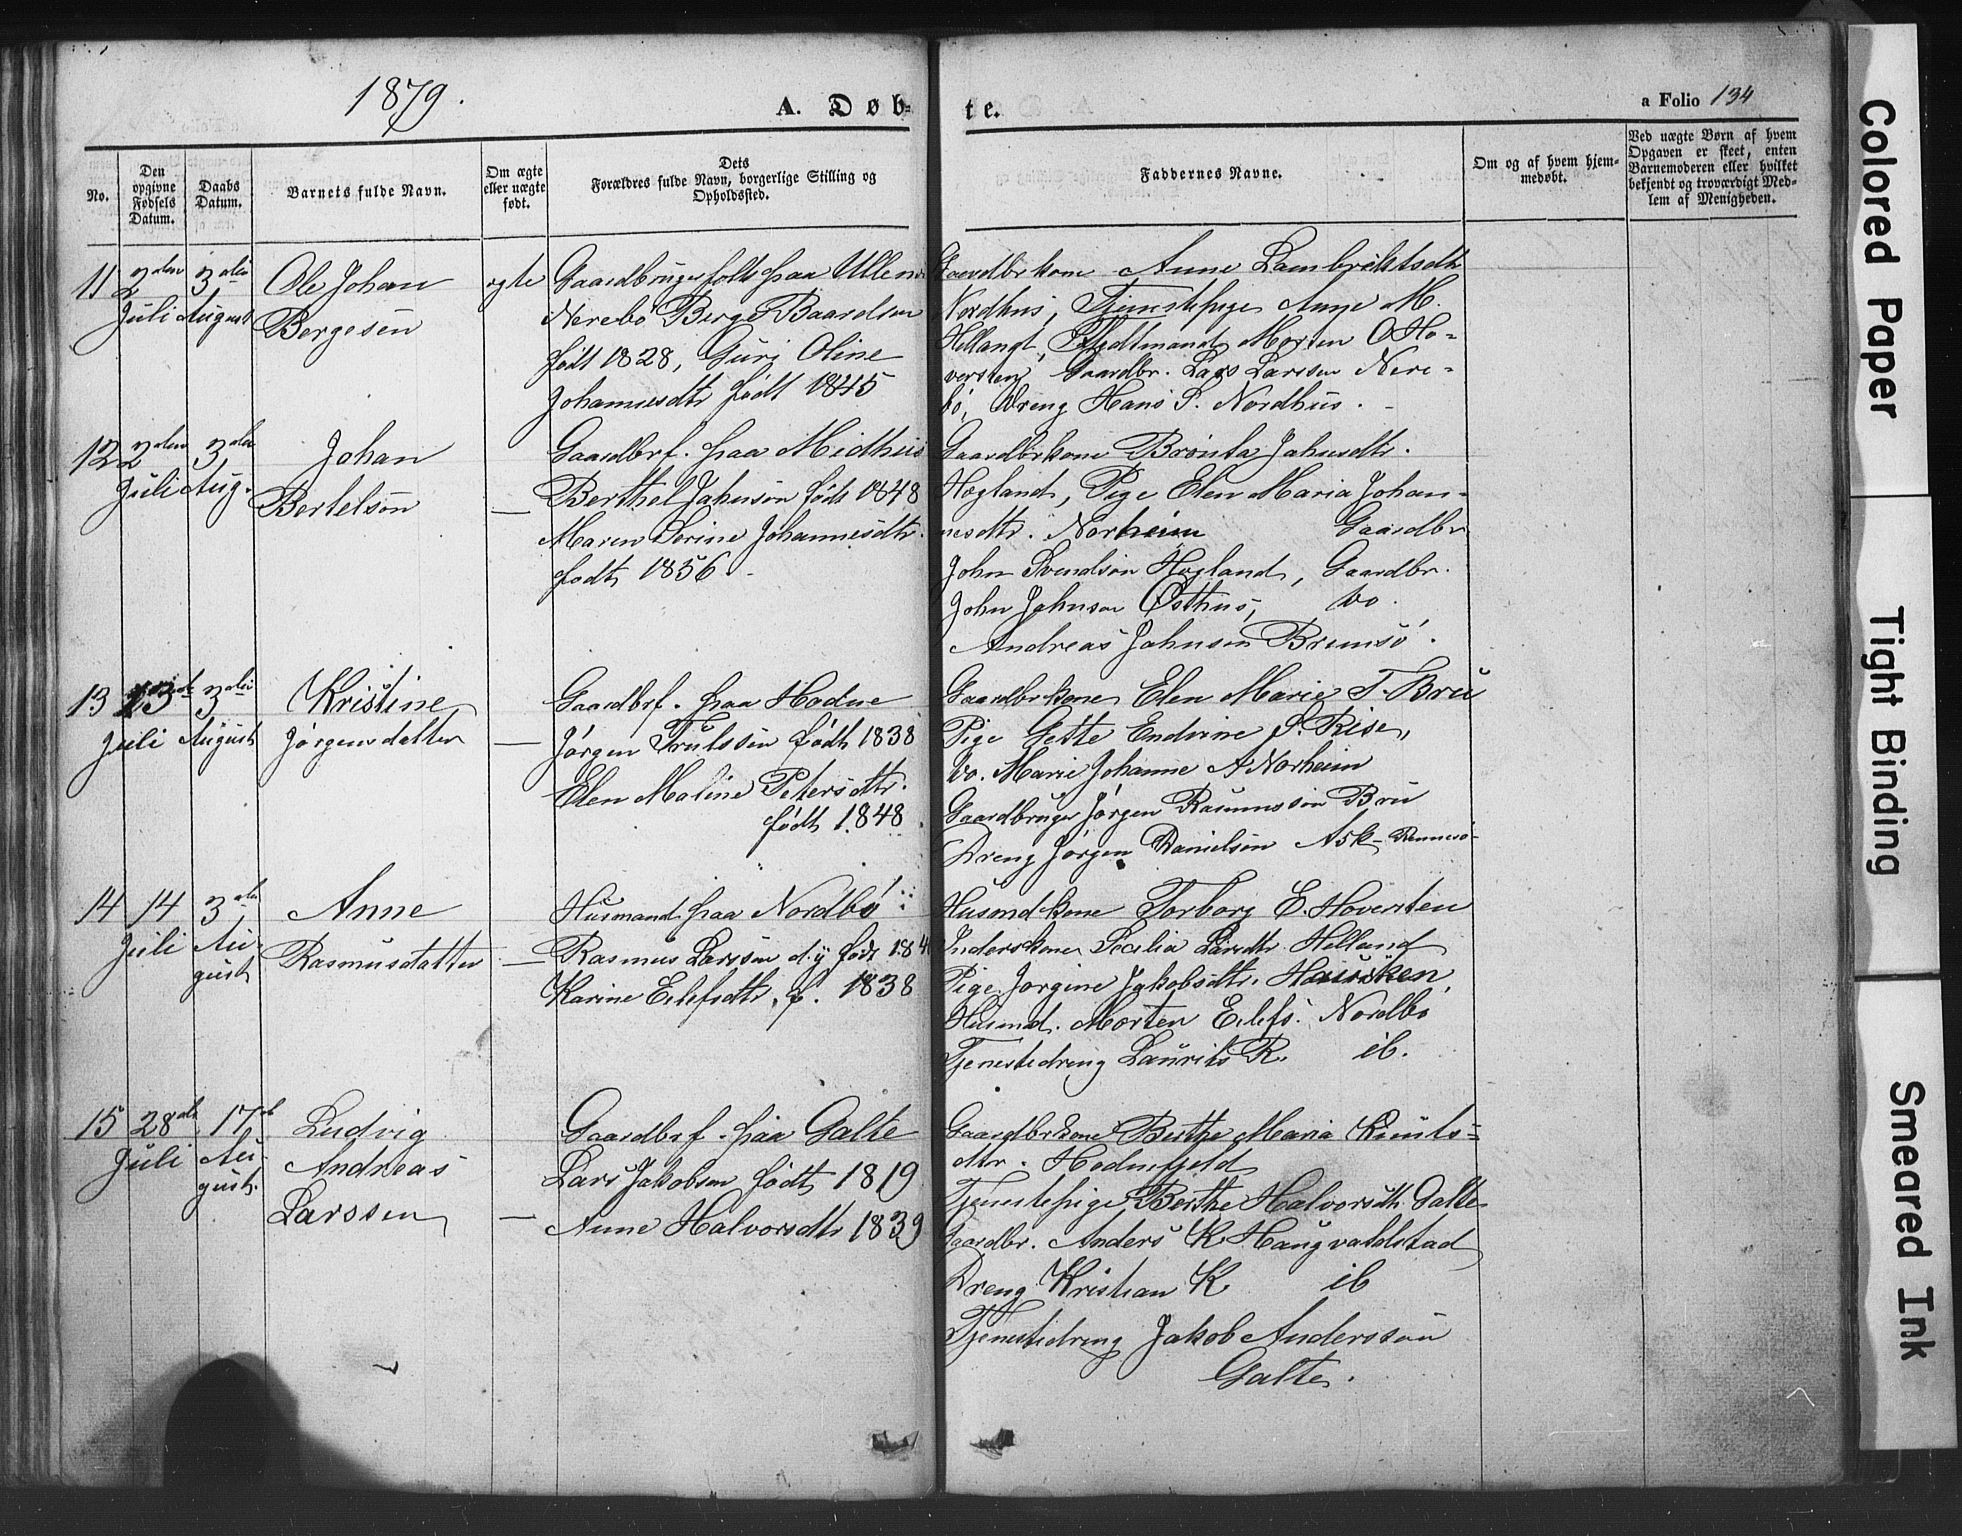 1879.
A. Døb-
te.
a Folio 134
No.
Den opgivne Fødsels Datum.
Daabs Datum.
Barnets fulde Navn.
Om ægte eller uægte født.
Dets Forældres fulde Navn, borgerlige Stilling og Opholdssted.
Faddernes Navne.
Om og af hvem hjemmedøbt.
Ved uægte Børn af hvem Opgaven er skeet, enten Barnemoderen eller hvilket bekjendt og troværdigt Medlem af Menigheden.
11 2den Juli 3die August
Ole Johan
Bergesen
ægte
Gaardbrugerfolk paa Ullen
Nerebø Berge Baardsen
født 1828, Guri Oline
Johannesdtr født 1845
Gaardbrkone Anne Lambrektsdtr
Nordhus, Tjenstepige Anne M.
Helland, Morten O Ho-
versten, Gaardbr. Lars Larsen Nere-
bø, Dreng Hans S. Nordhus.
12 2den Juli 3die Aug.
Johan
Bertelsen
—
Gaardbrf. paa Midthus
Berthel Jahnson født 1848
Maren Serine Johannesdtr.
født 1856.
Gaardbrkone Brønta Jahnsdtr.
Hogland, Pige Elen Maria Johan-
nesdtr. Norheim Gaardbr
John Svendson Hogland, Gaardbr.
John Jahnson Østhus, Do.
Andreas Jahnson Brimsø.
13 13de Juli 3die August
Kristine
Jørgensdatter
—
Gaardbrf. paa Hodne
Jørgen Trulssen født 1838
Elen Maline Petersdtr.
født 1848.
Gaardbrkone Elen Marie T. Bru
Pige Gette Endrine S. Rise,
Do. Marie Johanne A Norheim
Gaardbruger Jørgen Rasmusson Bru
Dreng Jørgen Danielsen Ask- Rennesø
14 14 Juli 3die August
Anne
Rasmusdatter
—
Husmand paa Nordbø
Rasmus Larsson d.y født 184
Karine Eilefsdtr. f. 1838
Husmdkone Torborg E. Hoversten
Inderskone Secilia Larsdtr. Helland
Pige Jorgine Jakobsdtr. Hausken,
Husmd. Morten Eilefs. Nordbø
Tjenestedreng Laurits R. ib.
15 28de Juli 17de August.
Ludvig
Andreas
Larssen
—
Gaardbrf. paa Galte
Lars Jakobsen født 1819
Anne Halvorsdtr 1839
Gaardbrkone Berthe Maria Knuts-
dtr. Hodnefjeld
Tjenstepige Berthe Halvorsdtr. Galte
Gaardbr. Anders K Haugvaldstad
Dreng Kristian K. ib
Tjenestedreng Jakob Anderssøn
Galte.
Colored Paper
Tight Binding
Smeared Ink